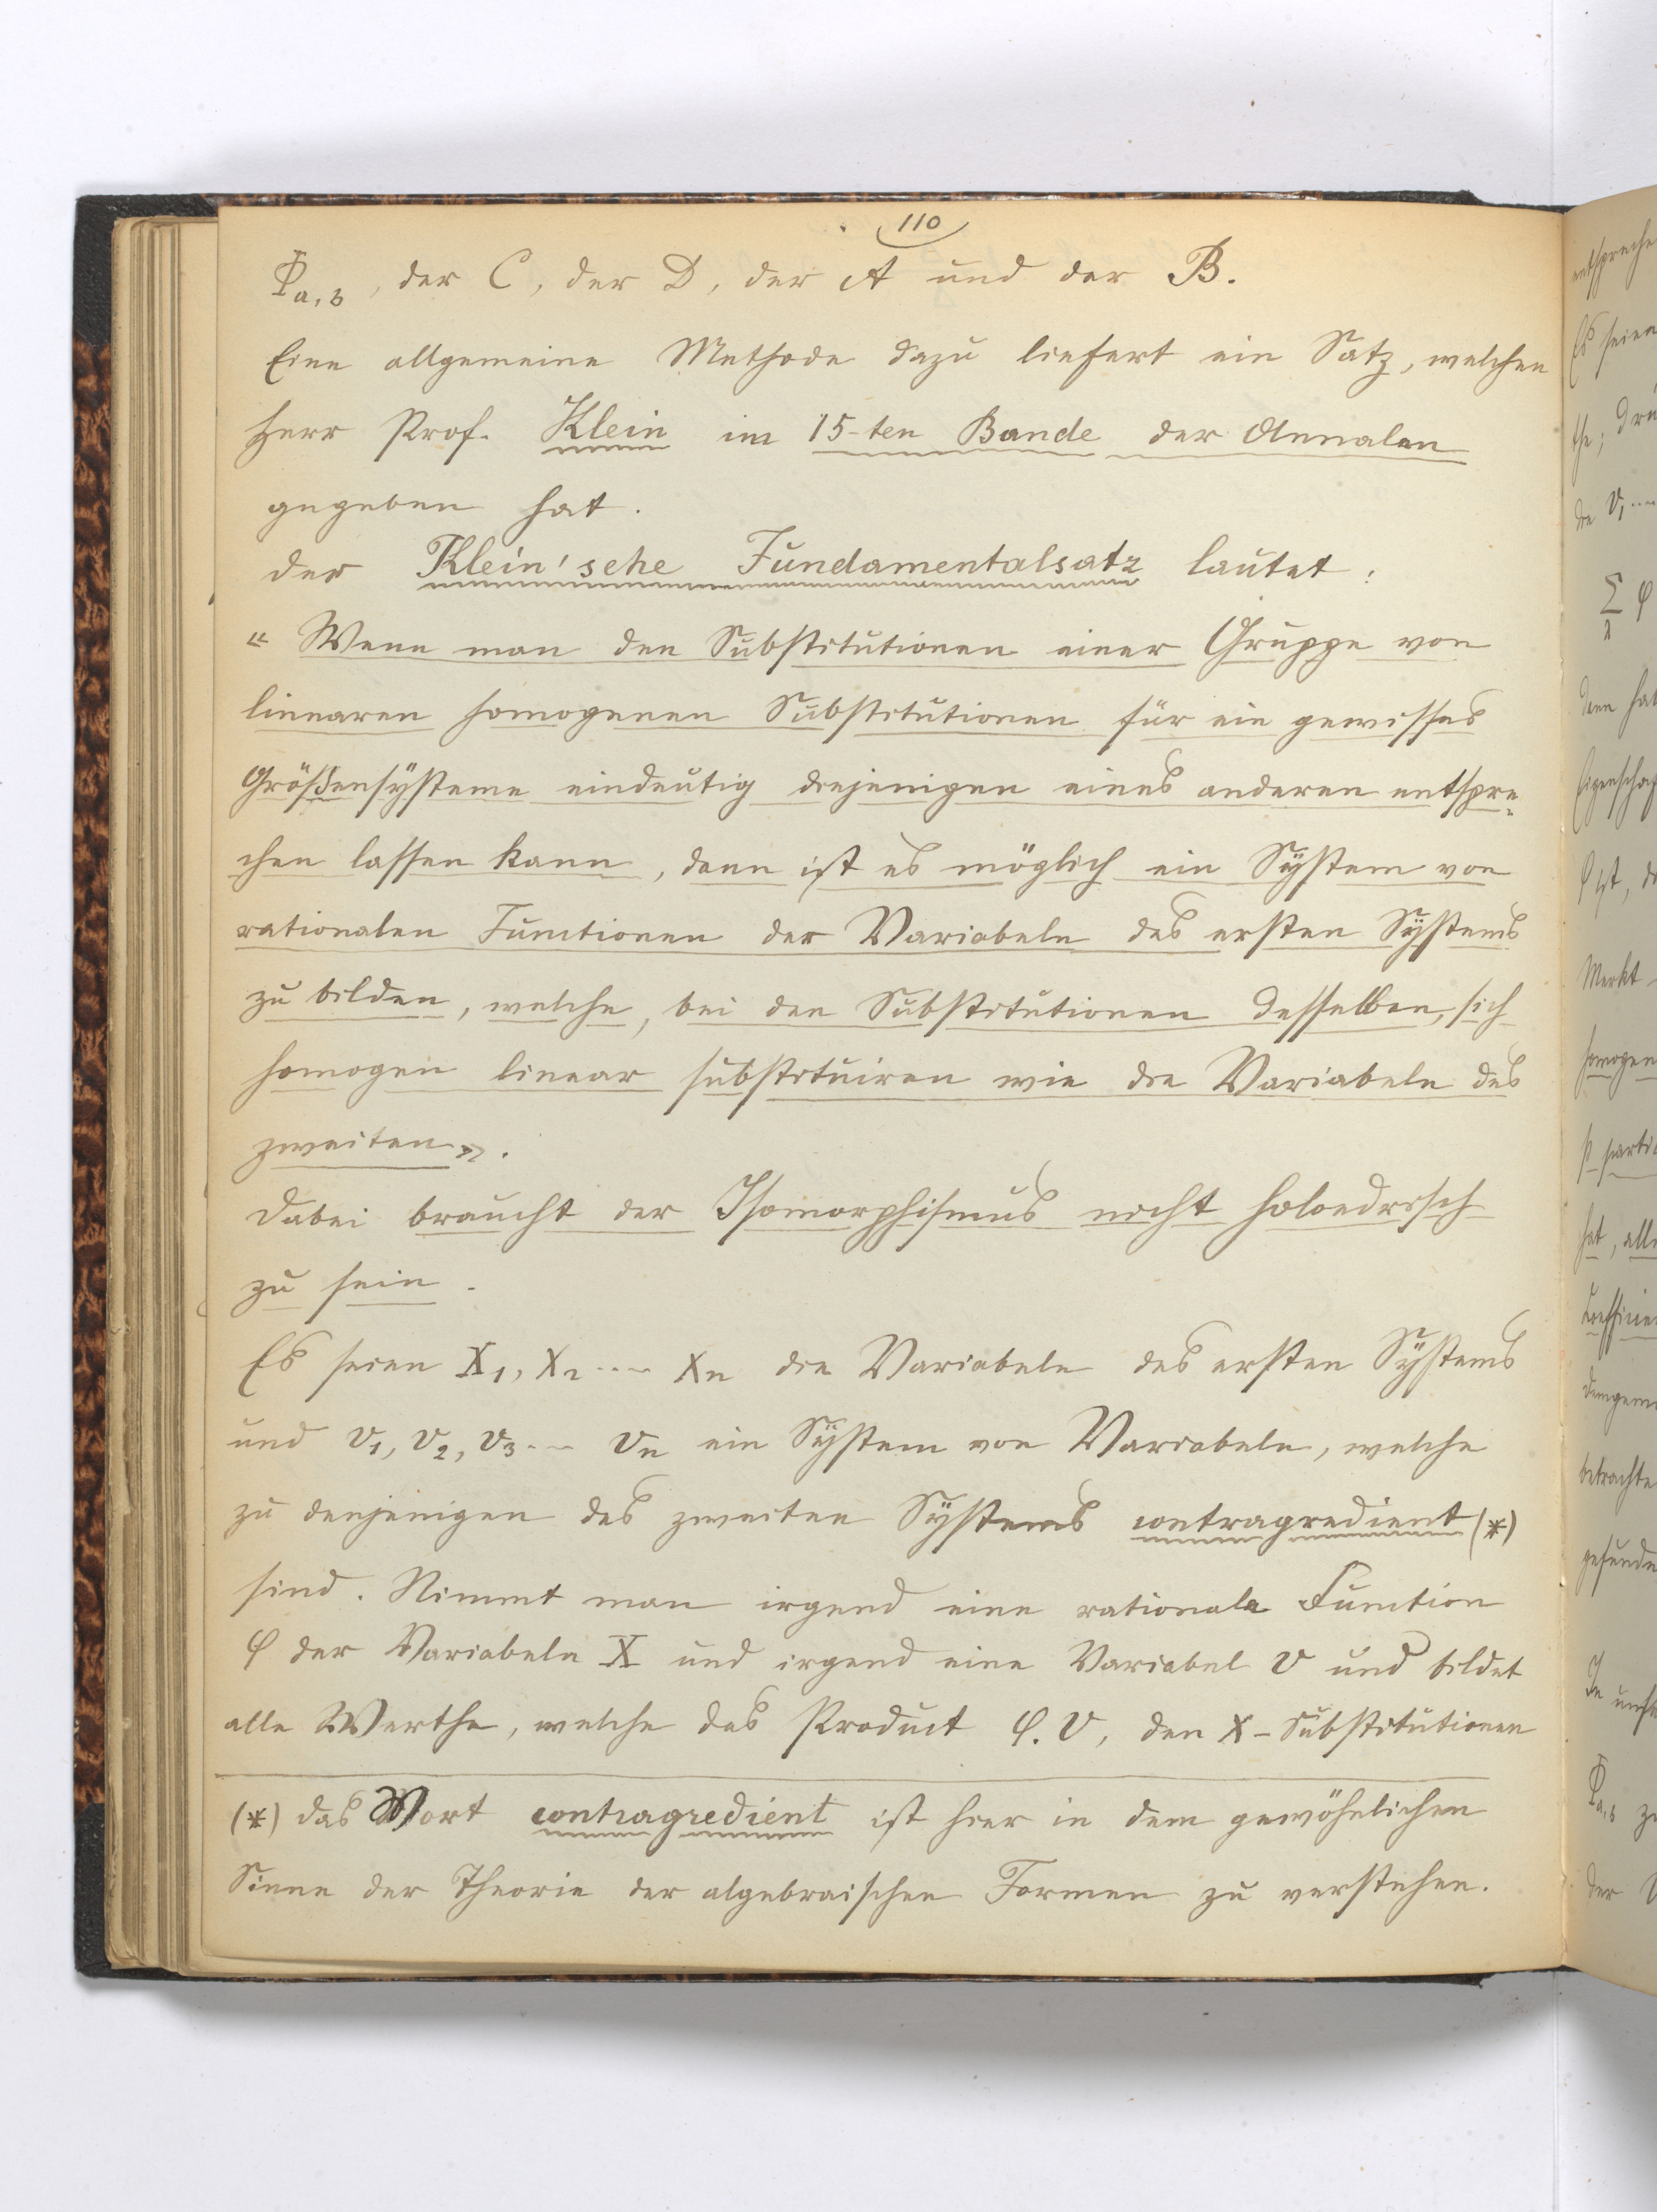 110
Φa,3, der C, der D, der A und der B.
Eine allgemeine Methode dazu liefert ein Satz, welchen
Herr Prof. Klein im 15-ten Bande der Annalen
gegeben hat.
Der Klein'sche Fundamentalsatz lautet:
« Wenn man den Substitutionen einer Gruppe von
linearen homogenen Substitutionen für ein gewisses
Größensysteme eindeutig diejenigen eines anderen entspre-
chen lassen kann, dann ist es möglich ein System von
rationalen Functionen der Variabeln des ersten Systems
zu bilden, welche, bei den Substitutionen desselben, sich
homogen linear substituiren wie die Variabeln des
zweiten».
Dabei braucht der Isomorphismus nicht holoedrisch
zu sein.
Es seien X1, X2 .... Xn die Variabeln des ersten Systems
und v1, v2, v3... vn ein System von Variabeln, welche
zu denjenigen des zweiten Systems contragredient (*)
sind. Nimmt man irgend eine rationale Function
φ der Variabeln X und irgend eine Variabel v und bildet
alle Werthe, welche das Product φ.v, den X-Substitutionen
(*) Das Wort contragredient ist hier in dem gewöhnlichen
Sinne der Theorie der algebraischen Formen zu verstehen.
entspreche
Es seien
the; drü
die v1....
Σ φ
λ
dann hat
Eigenschaf
φ ist, d
Merkt
homogen
hat, alle
Coefficie
demgem
betrachte
gefunde
Φa,3 zu
der v